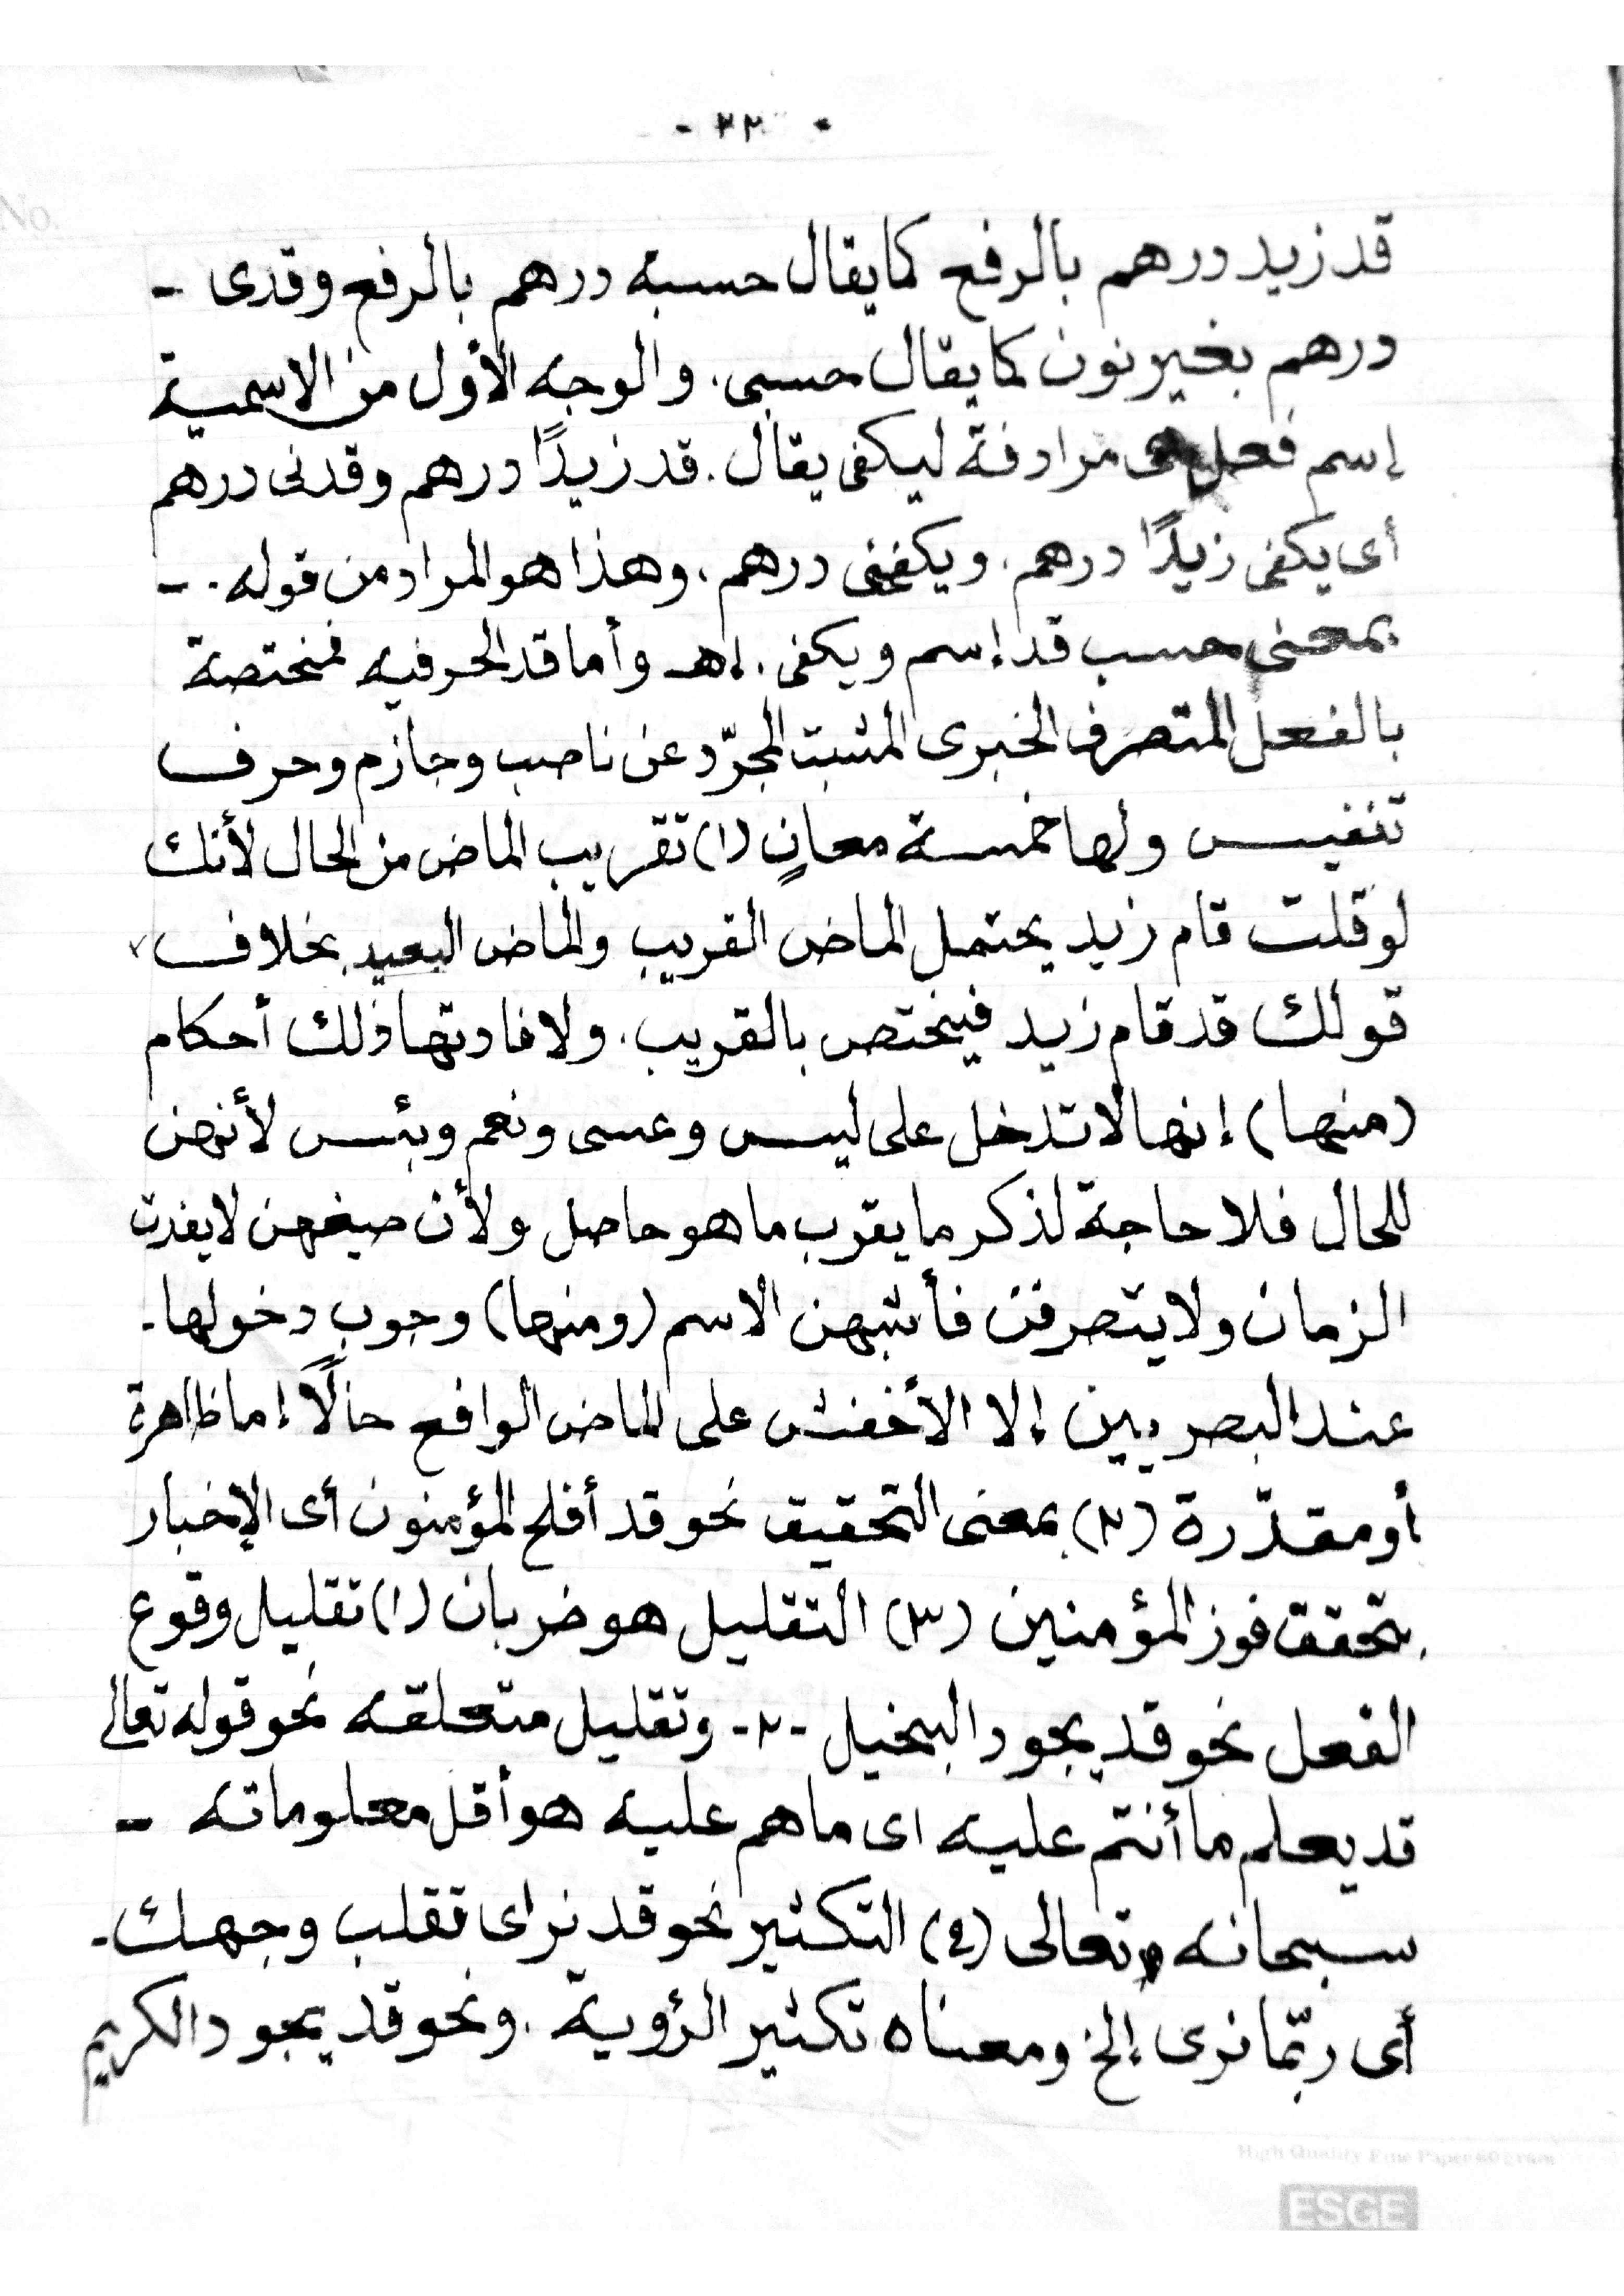 - ٢٣ -
No.
قد زيد درهم بالرفع كما يقال حسبه درهم بالرفع وقدى -
درهم بغير نون كما يقال حسبى. والوجه الأول من الاسمية
إسم فعل مرادفة ليكفى يقال. قد زيدًا درهم وقدنى درهم
أى يكفى زيدًا درهم. ويكفنى درهم. وهذا هو المراد من قوله. -
بمعنى حسب قد إسم ويكفى. إهـ وأما قد الحرفيه فمختصة
بالفعل المتصرف الخبرى المثبت المجرّد عن ناصب وجازم وحرف
تنفيس ولها خمسة معانٍ (١) تقريب الماض من الحال لأنك
لو قلت قام زيد يحتمل الماض القريب والماض البعيد بخلاف
قولك قد قام زيد فيختص بالقريب. ولافادتها ذلك أحكام
(منها) إنها لا تدخل على ليس وعسى ونعم وبئس لأنهن
للحال فلا حاجة لذكر ما يقرب ما هو حاصل ولأن صيغهن لا يفدن
الزمان ولا يتصرفن فأشبهن الاسم (ومنها) وجوب دخولها.
عند البصريين إلا الأخفش على الماض الواقع حالًا إما ظاهرة
أو مقدّرة (٢) بمعنى التحقيق نحو قد أفلح المؤمنون أى الإخبار
بتحقق فوز المؤمنين (٣) التقليل هو ضربان (١) تقليل وقوع
الفعل نحو قد يجود البخيل -٢- وتقليل متعلقه نحو قوله تعالى
قد يعلم ما أنتم عليه اى ما هم عليه هو أقل معلوماته -
سبحانه وتعالى (٤) التكثير نحو قد نراى تقلب وجهك.
أى ربّما نرى إلخ ومعناه تكثير الرؤية. ونحو قد يجود الكريم
High Quality Fine Paper 60 gram
ESGE